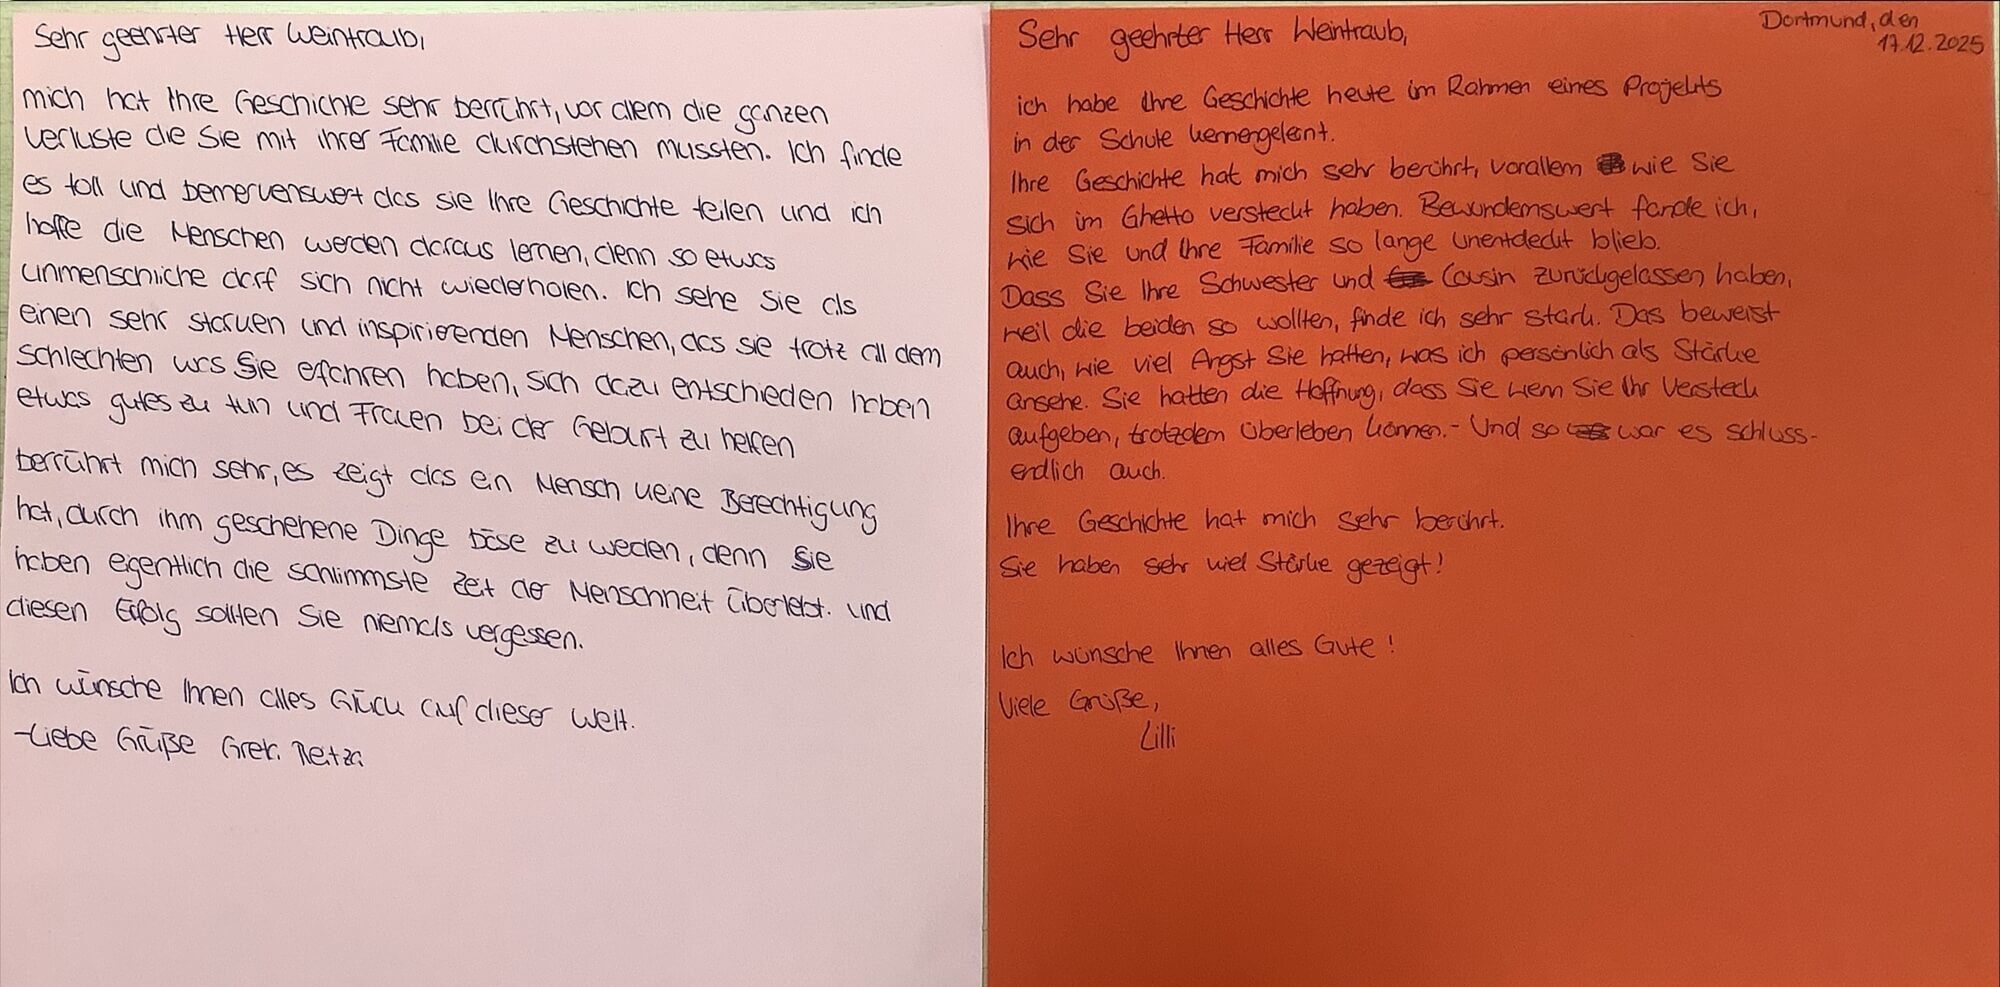 Sehr geehrter Herr Weintraub,
mich hat Ihre Geschichte sehr berrührt, vor allem die ganzen
Verluste die Sie mit ihrer Familie durchstehen mussten. Ich finde
es toll und bemerkenswert das sie Ihre Geschichte teilen und ich
hoffe die Menschen werden daraus lernen, denn so etwas
unmenschliche darf sich nicht wiederholen. Ich sehe Sie als
einen sehr starken und inspirierenden Menschen, das sie trotz all dem
schlechten was Sie erfahren haben, sich dazu entschieden haben
etwas gutes zu tun und Frauen bei der Geburt zu helfen
berrührt mich sehr, es zeigt das ein Mensch keine Berechtigung
hat, durch ihm geschehene Dinge böse zu weden, denn Sie
haben eigentlich die schlimmste Zeit der Menschheit überlebt. und
diesen Erfolg sollten Sie niemals vergessen.
Ich wünsche Ihnen alles Glück auf dieser Welt.
-Liebe Grüße Greta
Dortmund, den
17.12.2025
Sehr geehrter Herr Weintraub,
ich habe Ihre Geschichte heute im Rahmen eines Projekts
in der Schule kennengelernt.
Ihre Geschichte hat mich sehr berührt, vorallem wie Sie
sich im Ghetto versteckt haben. Bewundernswert fande ich,
wie Sie und Ihre Familie so lange unentdeckt blieb.
Dass Sie Ihre Schwester und Cousin zurückgelassen haben,
weil die beiden so wollten, finde ich sehr stark. Das beweist
auch, wie viel Angst Sie hatten, was ich persönlich als Stärke
ansehe. Sie hatten die Hoffnung, dass Sie wenn Sie Ihr Versteck
aufgeben, trotzdem überleben können.- Und so war es schluss-
endlich auch.
Ihre Geschichte hat mich sehr berührt.
Sie haben sehr viel Stärke gezeigt!
Ich wünsche Ihnen alles Gute!
Viele Grüße,
Lilli